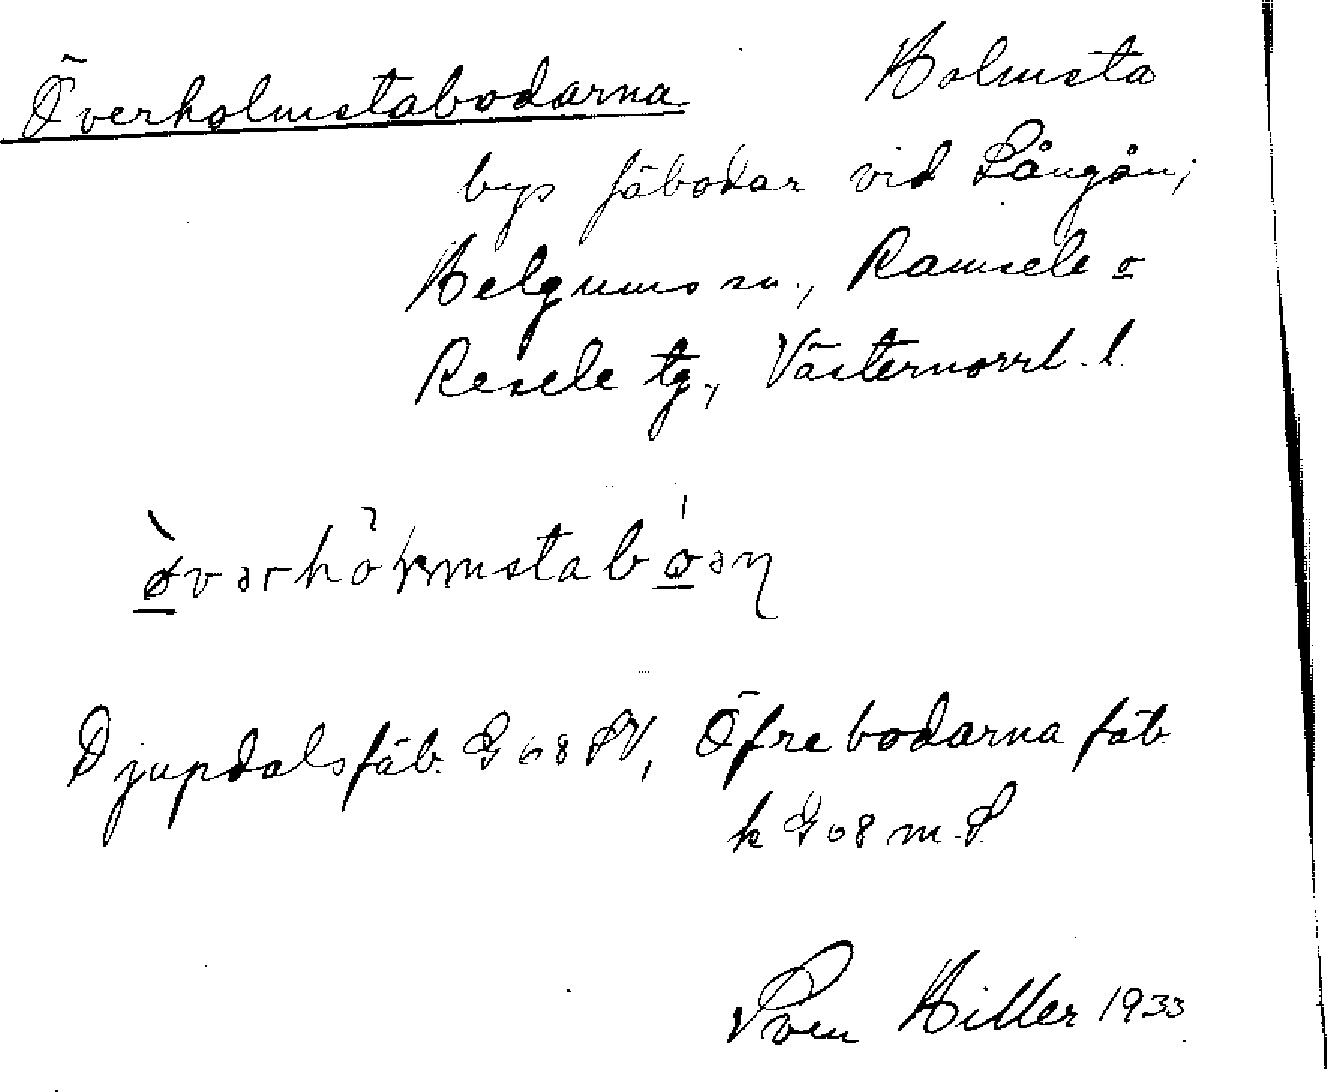 Överholmstabodarna Holmsta
bys fäbodar vid Långån,
Helgums sn., Ramsele o
Resele tg., Västernorrl. l.
Djupdalsfäb. G 68 SV, Öfrebodarna fäb.
k G 68 m. S.
Sven Hiller 1933